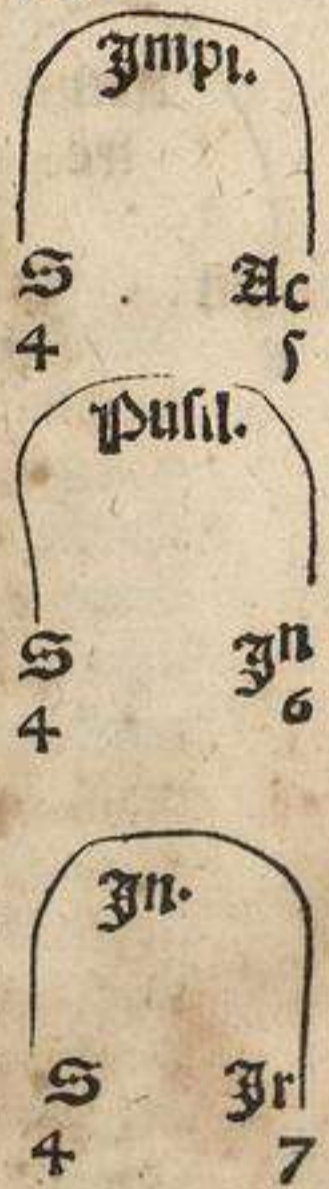 Impi.
S Ac
4 5
Pusil.
S In
4 6
In.
S Ir
4 7